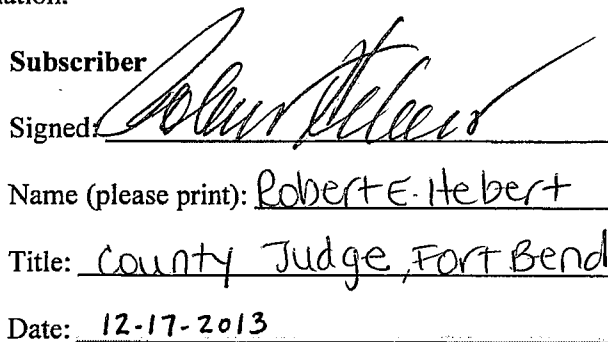 Subscriber
Signed: Robert Hebert
Name (please print): Robert E. Hebert
Title: County Judge, Fort Bend
Date: 12-17-2013